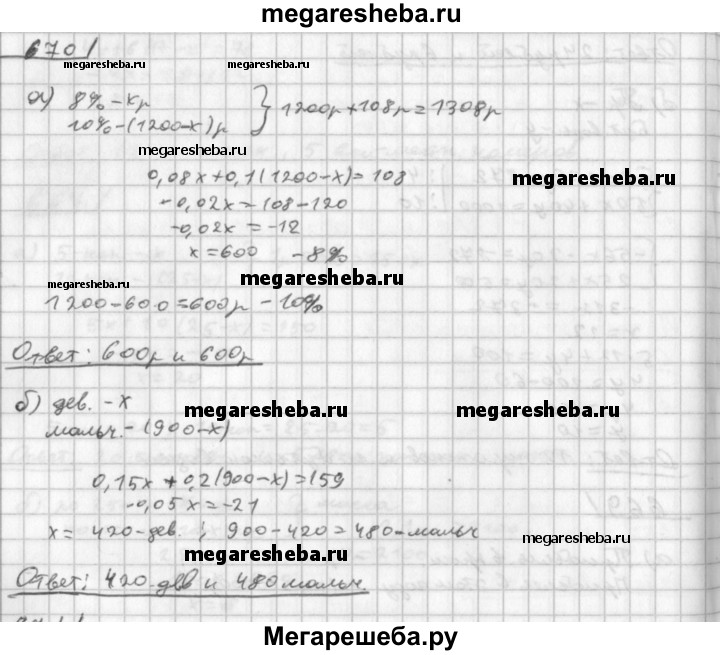 megaresheba.ru
670/
megaresheba.ru megaresheba.ru
а) 8% - х р
10% - (1200-х) р } 1200р + 108р = 1308р
megaresheba.ru
0,08х + 0,1(1200-х) = 108
megaresheba.ru
-0,02х = 108-120
-0,02х = -12
х = 600 - 8%
megaresheba.ru
1200-600 = 600р - 10%
Ответ: 600р и 600р
б) дев. - х
megaresheba.ru megaresheba.ru
мальч. - (900-х)
0,15х + 0,2(900-х) = 159
-0,05х = -21
х = 420 - дев. ; 900 - 420 = 480 - мальч
megaresheba.ru
megaresheba.ru
Ответ: 420 дев и 480 мальч.
megaresheba.ru
Мегарешеба.ру